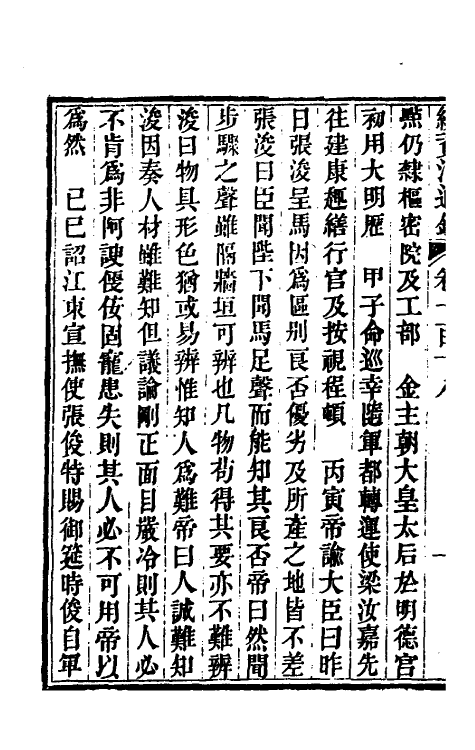 續資治通鑑 卷一百十八 一
點仍隸樞密院及工部　金主朝大皇太后於明德宮
初用大明歷　甲子命巡幸隨軍都轉運使梁汝嘉先
往建康趣繕行宫及按視程頓　丙寅帝諭大臣曰昨
日張浚呈馬因爲區别良否優劣及所產之地皆不差
張浚曰臣聞陛下聞馬足聲而能知其良否帝曰然聞
步驟之聲雖隔牆垣可辨也凡物茍得其要亦不難辨
浚曰物具形色猶或易辨惟知人爲難帝曰人誠難知
浚因奏人材雖難知但議論剛正面目嚴冷則其人必
不肯爲非阿諛便佞固寵患失則其人必不可用帝以
爲然　已巳詔江東宣撫使張俊特賜御筵時俊自軍